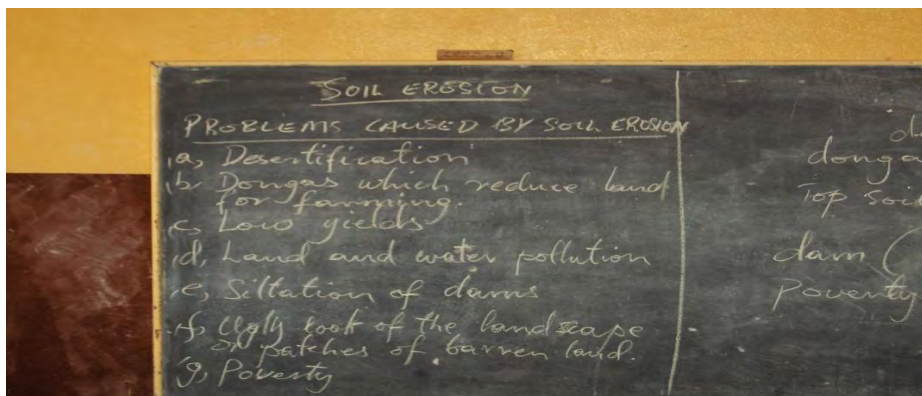 SOIL EROSION
PROBLEMS CAUSED BY SOIL EROSION
a, Desertification
b, Dongas which reduce land
for farming.
c, Low yields
d, Land and water pollution
e, Siltation of dams
f, Ugly look of the landscape
or patches of barren land.
g, Poverty
d
donga
Top soi
dam (
Poverty